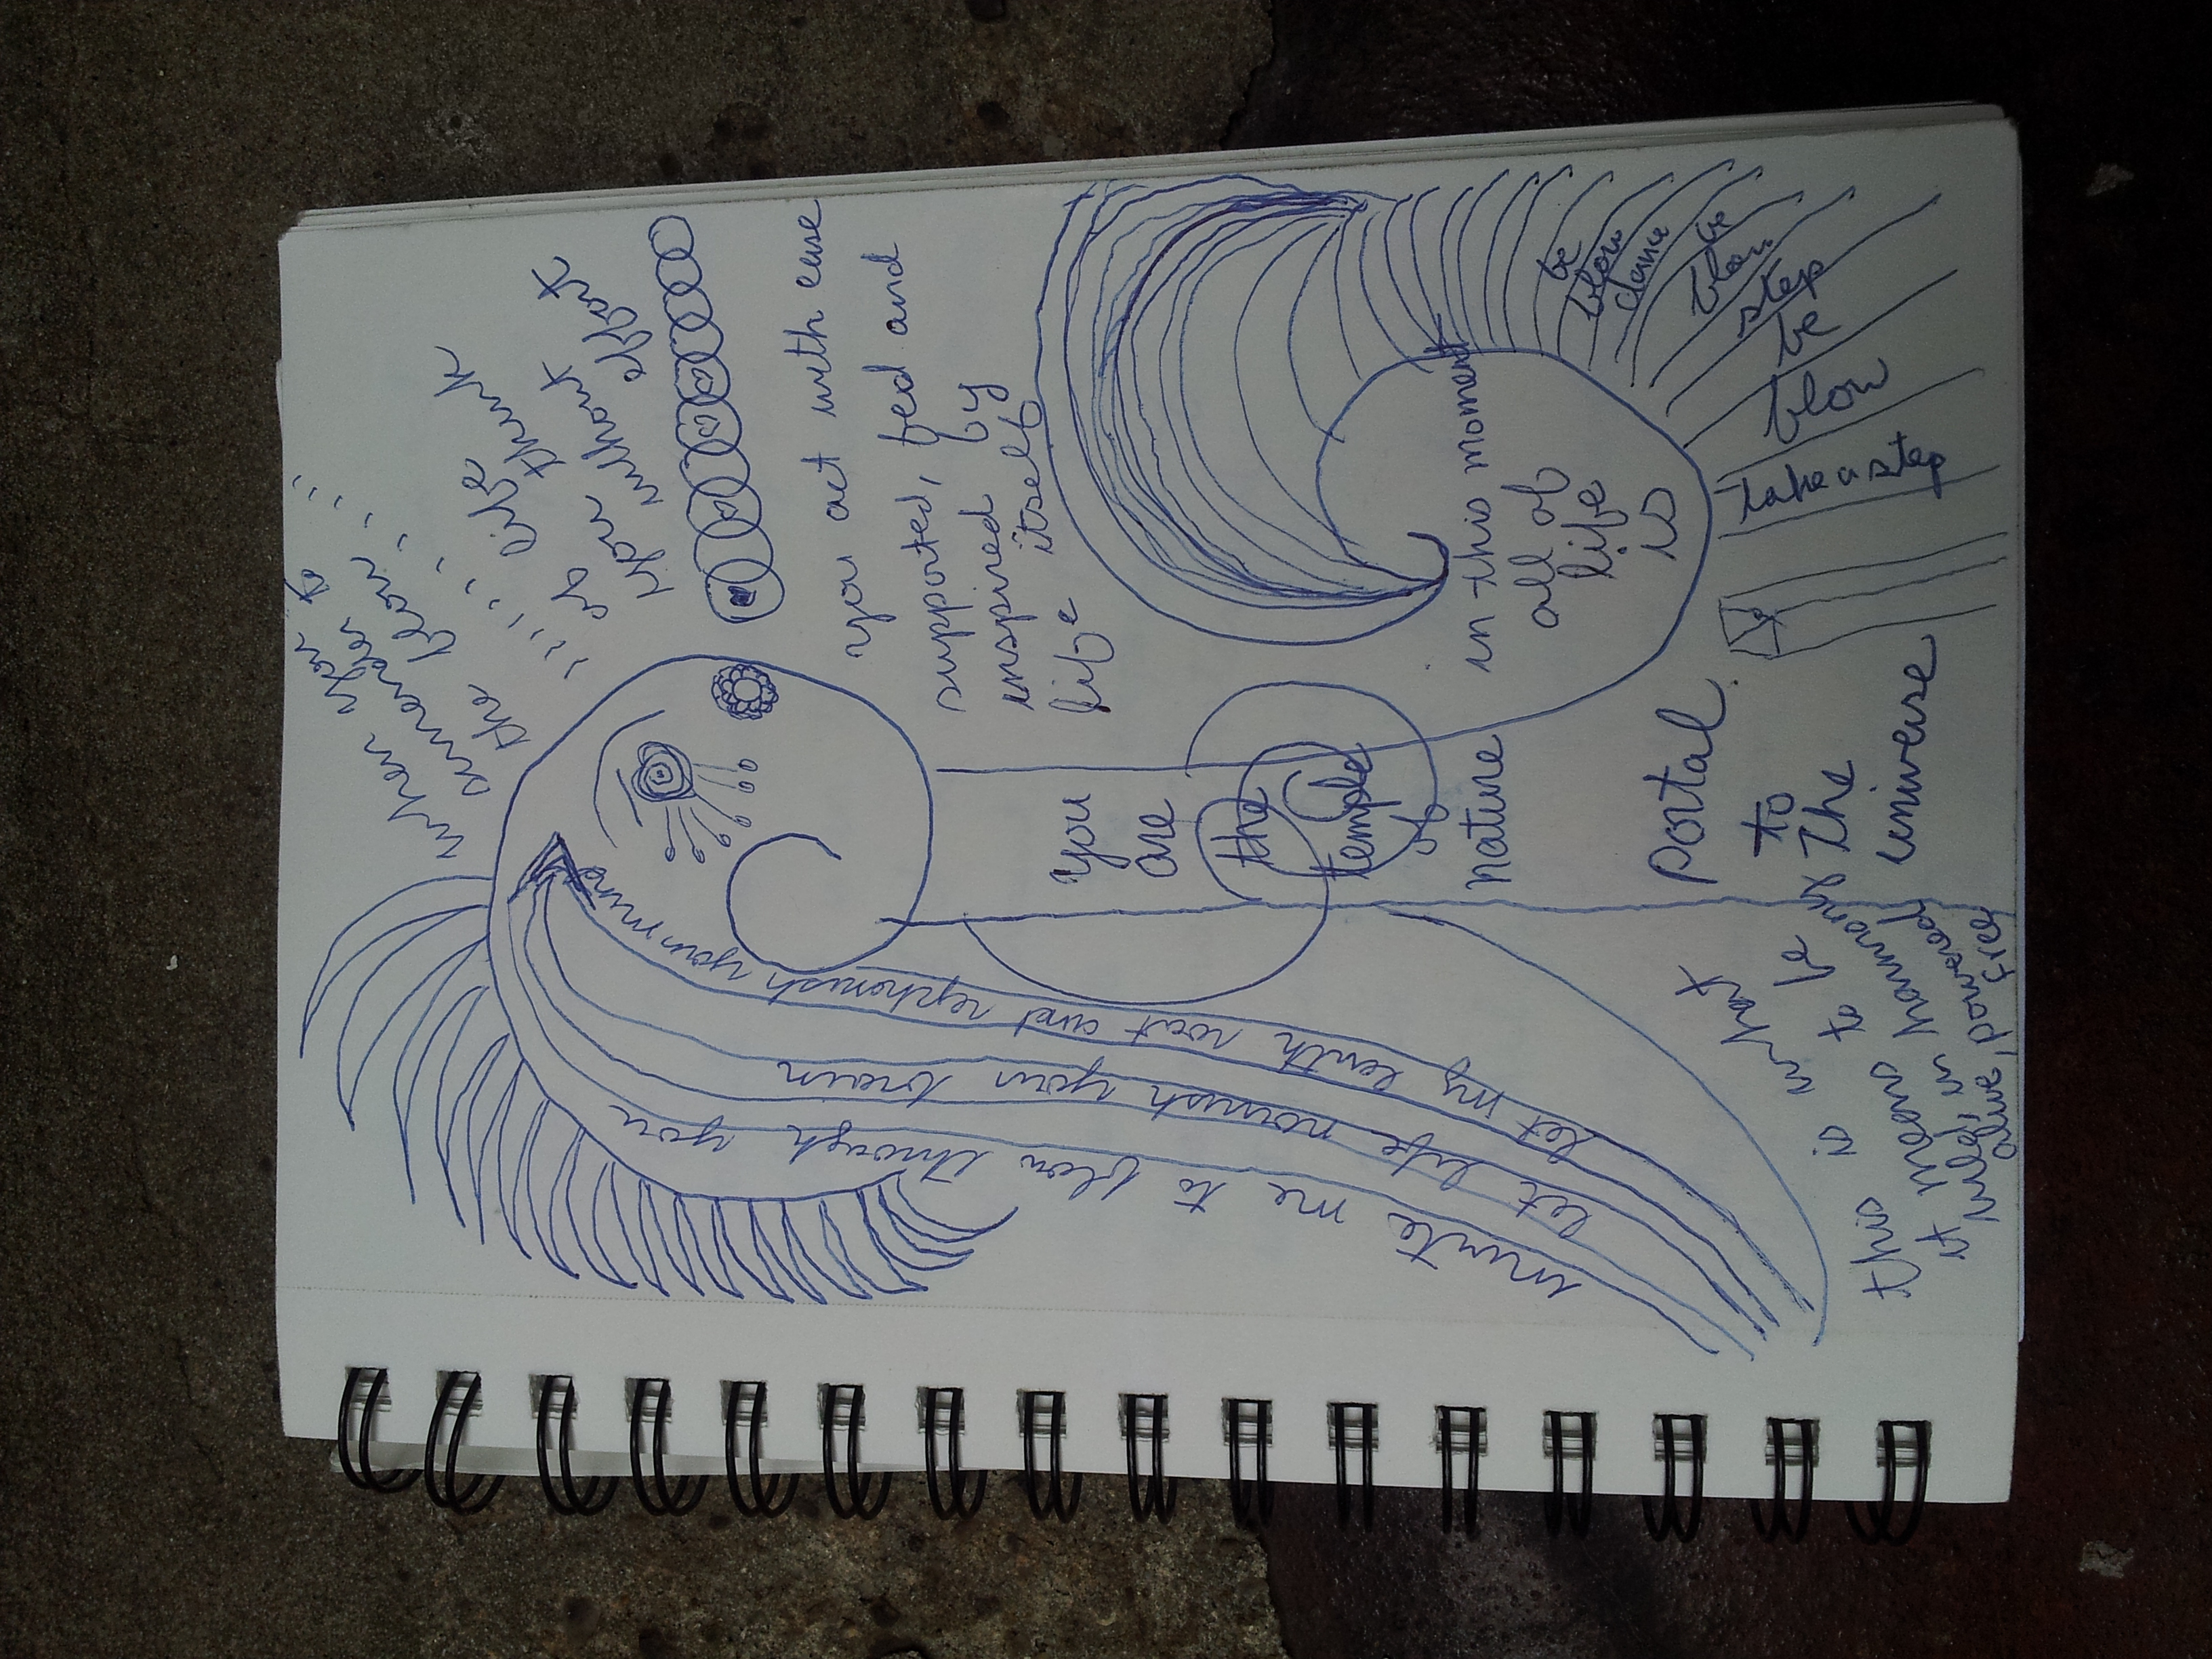 when you
surrender to
the flow
it is like
you think
without
effort
you act with ease
supported, fed and
inspired by
life itself
in this moment
all of
life
is
be
flow
dance
be
flow
step
be
flow
take a step
you
are
the
temple
of
nature
Portal
to
the
universe
invite me to flow through you
let life nourish your brain
let my earth root and replenish your mind
this is what
it means to be
wild, in harmony
alive, powered
free